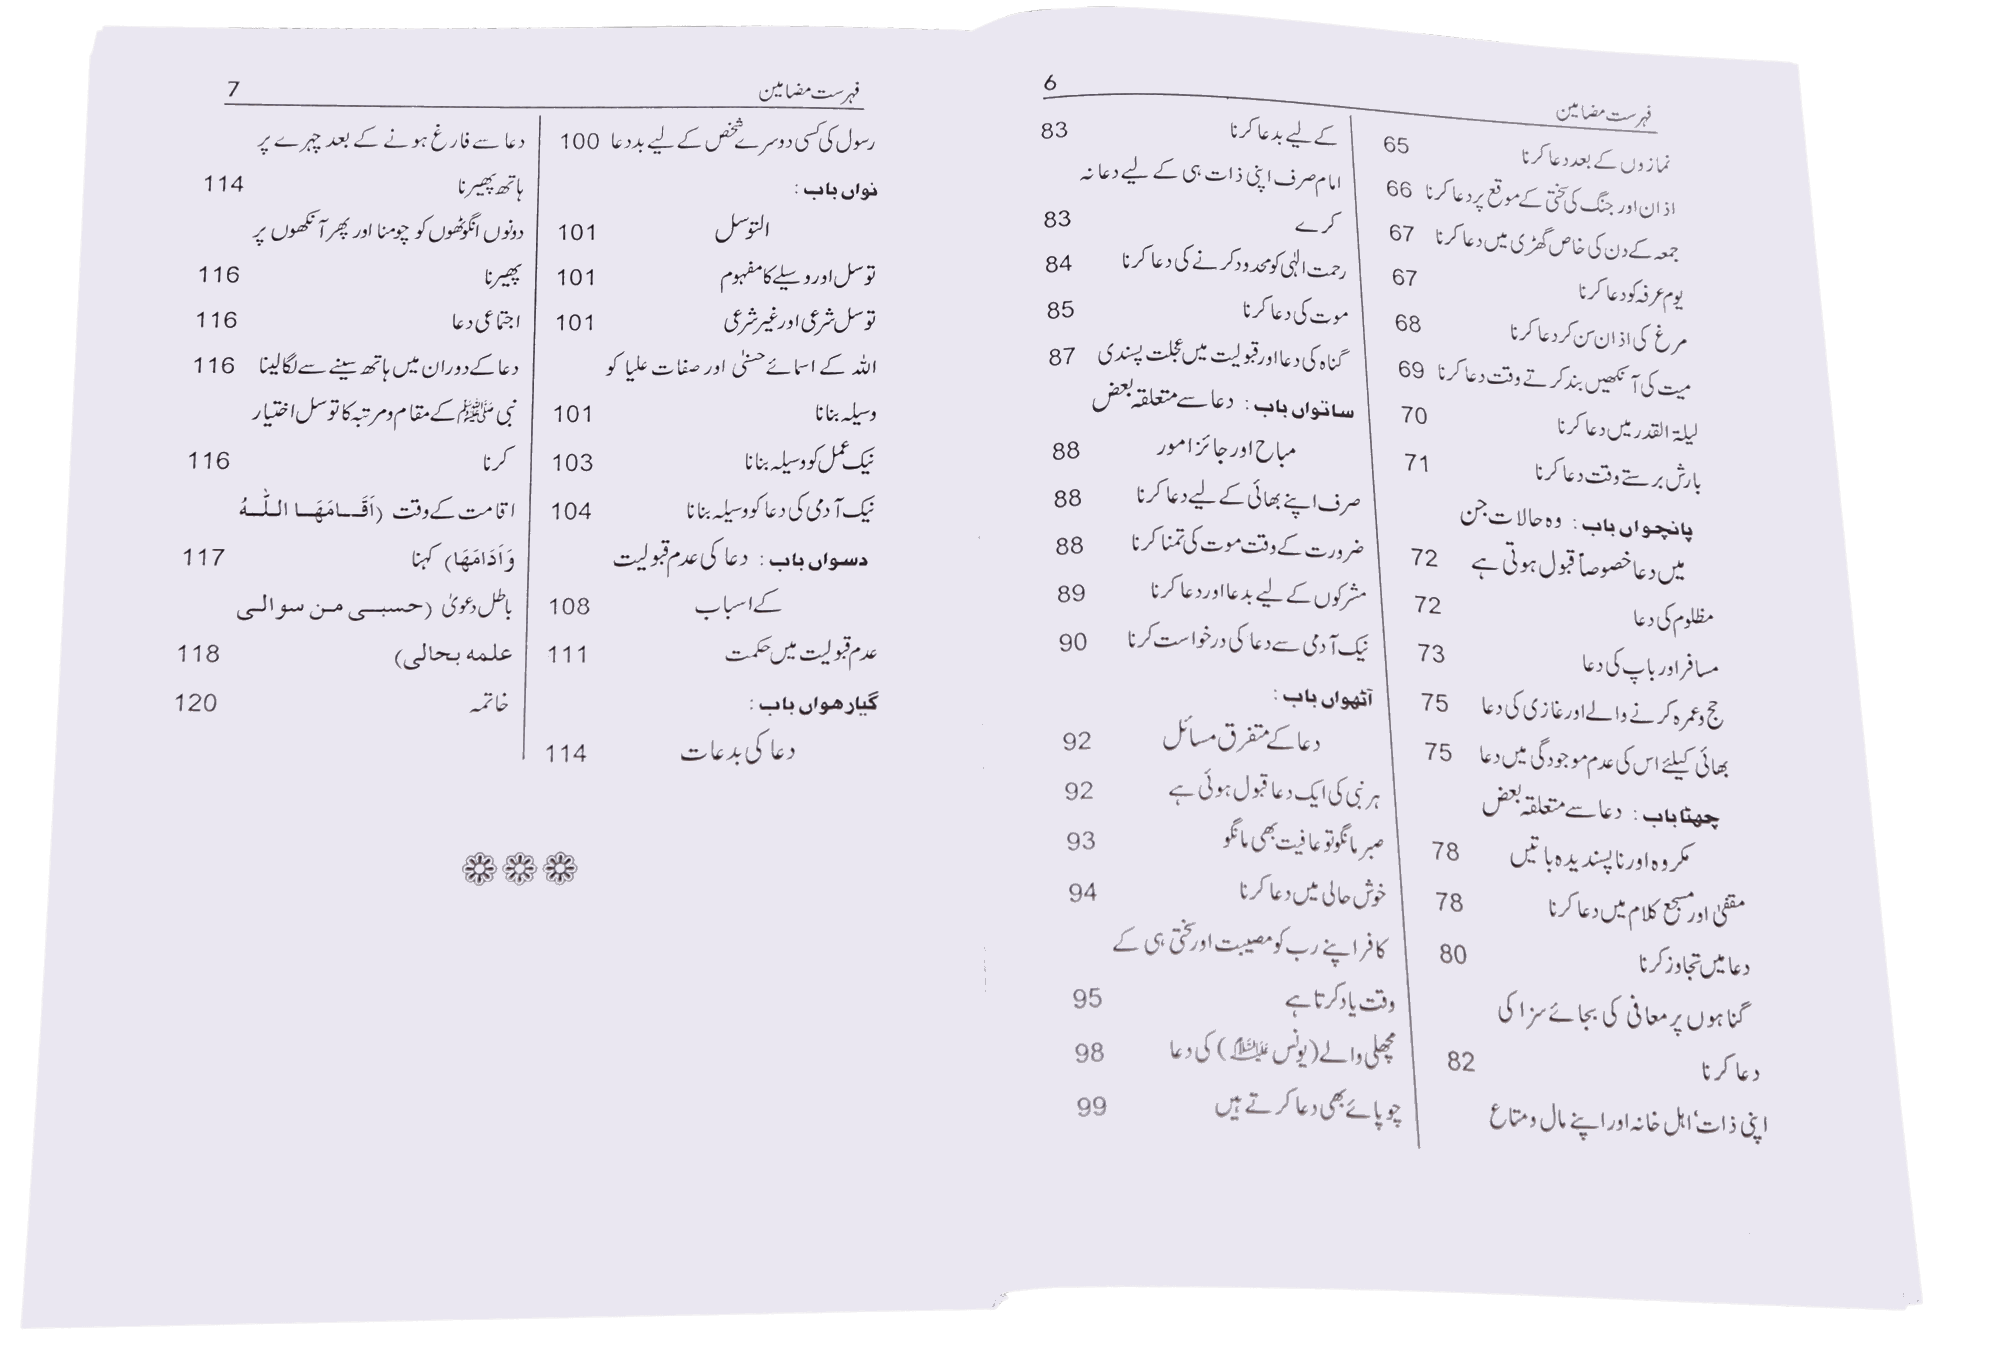 فہرست مضامین 6
نمازوں کے بعد دعا کرنا 65
اذان اور جنگ کی سختی کے موقع پر دعا کرنا 66
جمعہ کے دن کی خاص گھڑی میں دعا کرنا 67
یوم عرفہ کو دعا کرنا 67
مرغ کی اذان سن کر دعا کرنا 68
میت کی آنکھیں بند کرتے وقت دعا کرنا 69
لیلۃ القدر میں دعا کرنا 70
بارش برستے وقت دعا کرنا 71
پانچواں باب : وہ حالات جن
میں دعا خصوصاً قبول ہوتی ہے 72
مظلوم کی دعا 72
مسافر اور باپ کی دعا 73
حج و عمرہ کرنے والے اور غازی کی دعا 75
بھائی کیلئے اس کی عدم موجودگی میں دعا 75
چھٹا باب : دعا سے متعلقہ بعض
مکروہ اور ناپسندیدہ باتیں 78
مقفیٰ اور مسجع کلام میں دعا کرنا 78
دعا میں تجاوز کرنا 80
گناہوں پر معافی کی بجائے سزا کی
دعا کرنا 82
اپنی ذات‘ اہل خانہ اور اپنے مال و متاع
کے لیے بدعا کرنا 83
امام صرف اپنی ذات ہی کے لیے دعا نہ
کرے 83
رحمت الٰہی کو محدود کرنے کی دعا کرنا 84
موت کی دعا کرنا 85
گناہ کی دعا اور قبولیت میں عجلت پسندی 87
ساتواں باب : دعا سے متعلقہ بعض
مباح اور جائز امور 88
صرف اپنے بھائی کے لیے دعا کرنا 88
ضرورت کے وقت موت کی تمنا کرنا 88
مشرکوں کے لیے بدعا اور دعا کرنا 89
نیک آدمی سے دعا کی درخواست کرنا 90
آٹھواں باب :
دعا کے متفرق مسائل 92
ہر نبی کی ایک دعا قبول ہوئی ہے 92
صبر مانگو تو عافیت بھی مانگو 93
خوش حالی میں دعا کرنا 94
کافر اپنے رب کو مصیبت اور سختی ہی کے
وقت یاد کرتا ہے 95
مچھلی والے (یونس علیہ السلام) کی دعا 98
چوپائے بھی دعا کرتے ہیں 99
فہرست مضامین 7
رسول کی کسی دوسرے شخص کے لیے بددعا 100
نواں باب :
التوسل 101
توسل اور وسیلے کا مفہوم 101
توسل شرعی اور غیر شرعی 101
اللہ کے اسمائے حسنیٰ اور صفات علیا کو
وسیلہ بنانا 101
نیک عمل کو وسیلہ بنانا 103
نیک آدمی کی دعا کو وسیلہ بنانا 104
دسواں باب : دعا کی عدم قبولیت
کے اسباب 108
عدم قبولیت میں حکمت 111
گیارھواں باب :
دعا کی بدعات 114
دعا سے فارغ ہونے کے بعد چہرے پر
ہاتھ پھیرنا 114
دونوں انگوٹھوں کو چومنا اور پھر آنکھوں پر
پھیرنا 116
اجتماعی دعا 116
دعا کے دوران میں ہاتھ سینے سے لگا لینا 116
نبی ﷺ کے مقام و مرتبہ کا توسل اختیار
کرنا 116
اقامت کے وقت (اَقَامَهَا اللّٰهُ
وَاَدَامَهَا) کہنا 117
باطل دعویٰ (حسبی من سوالی
علمه بحالی) 118
خاتمہ 120